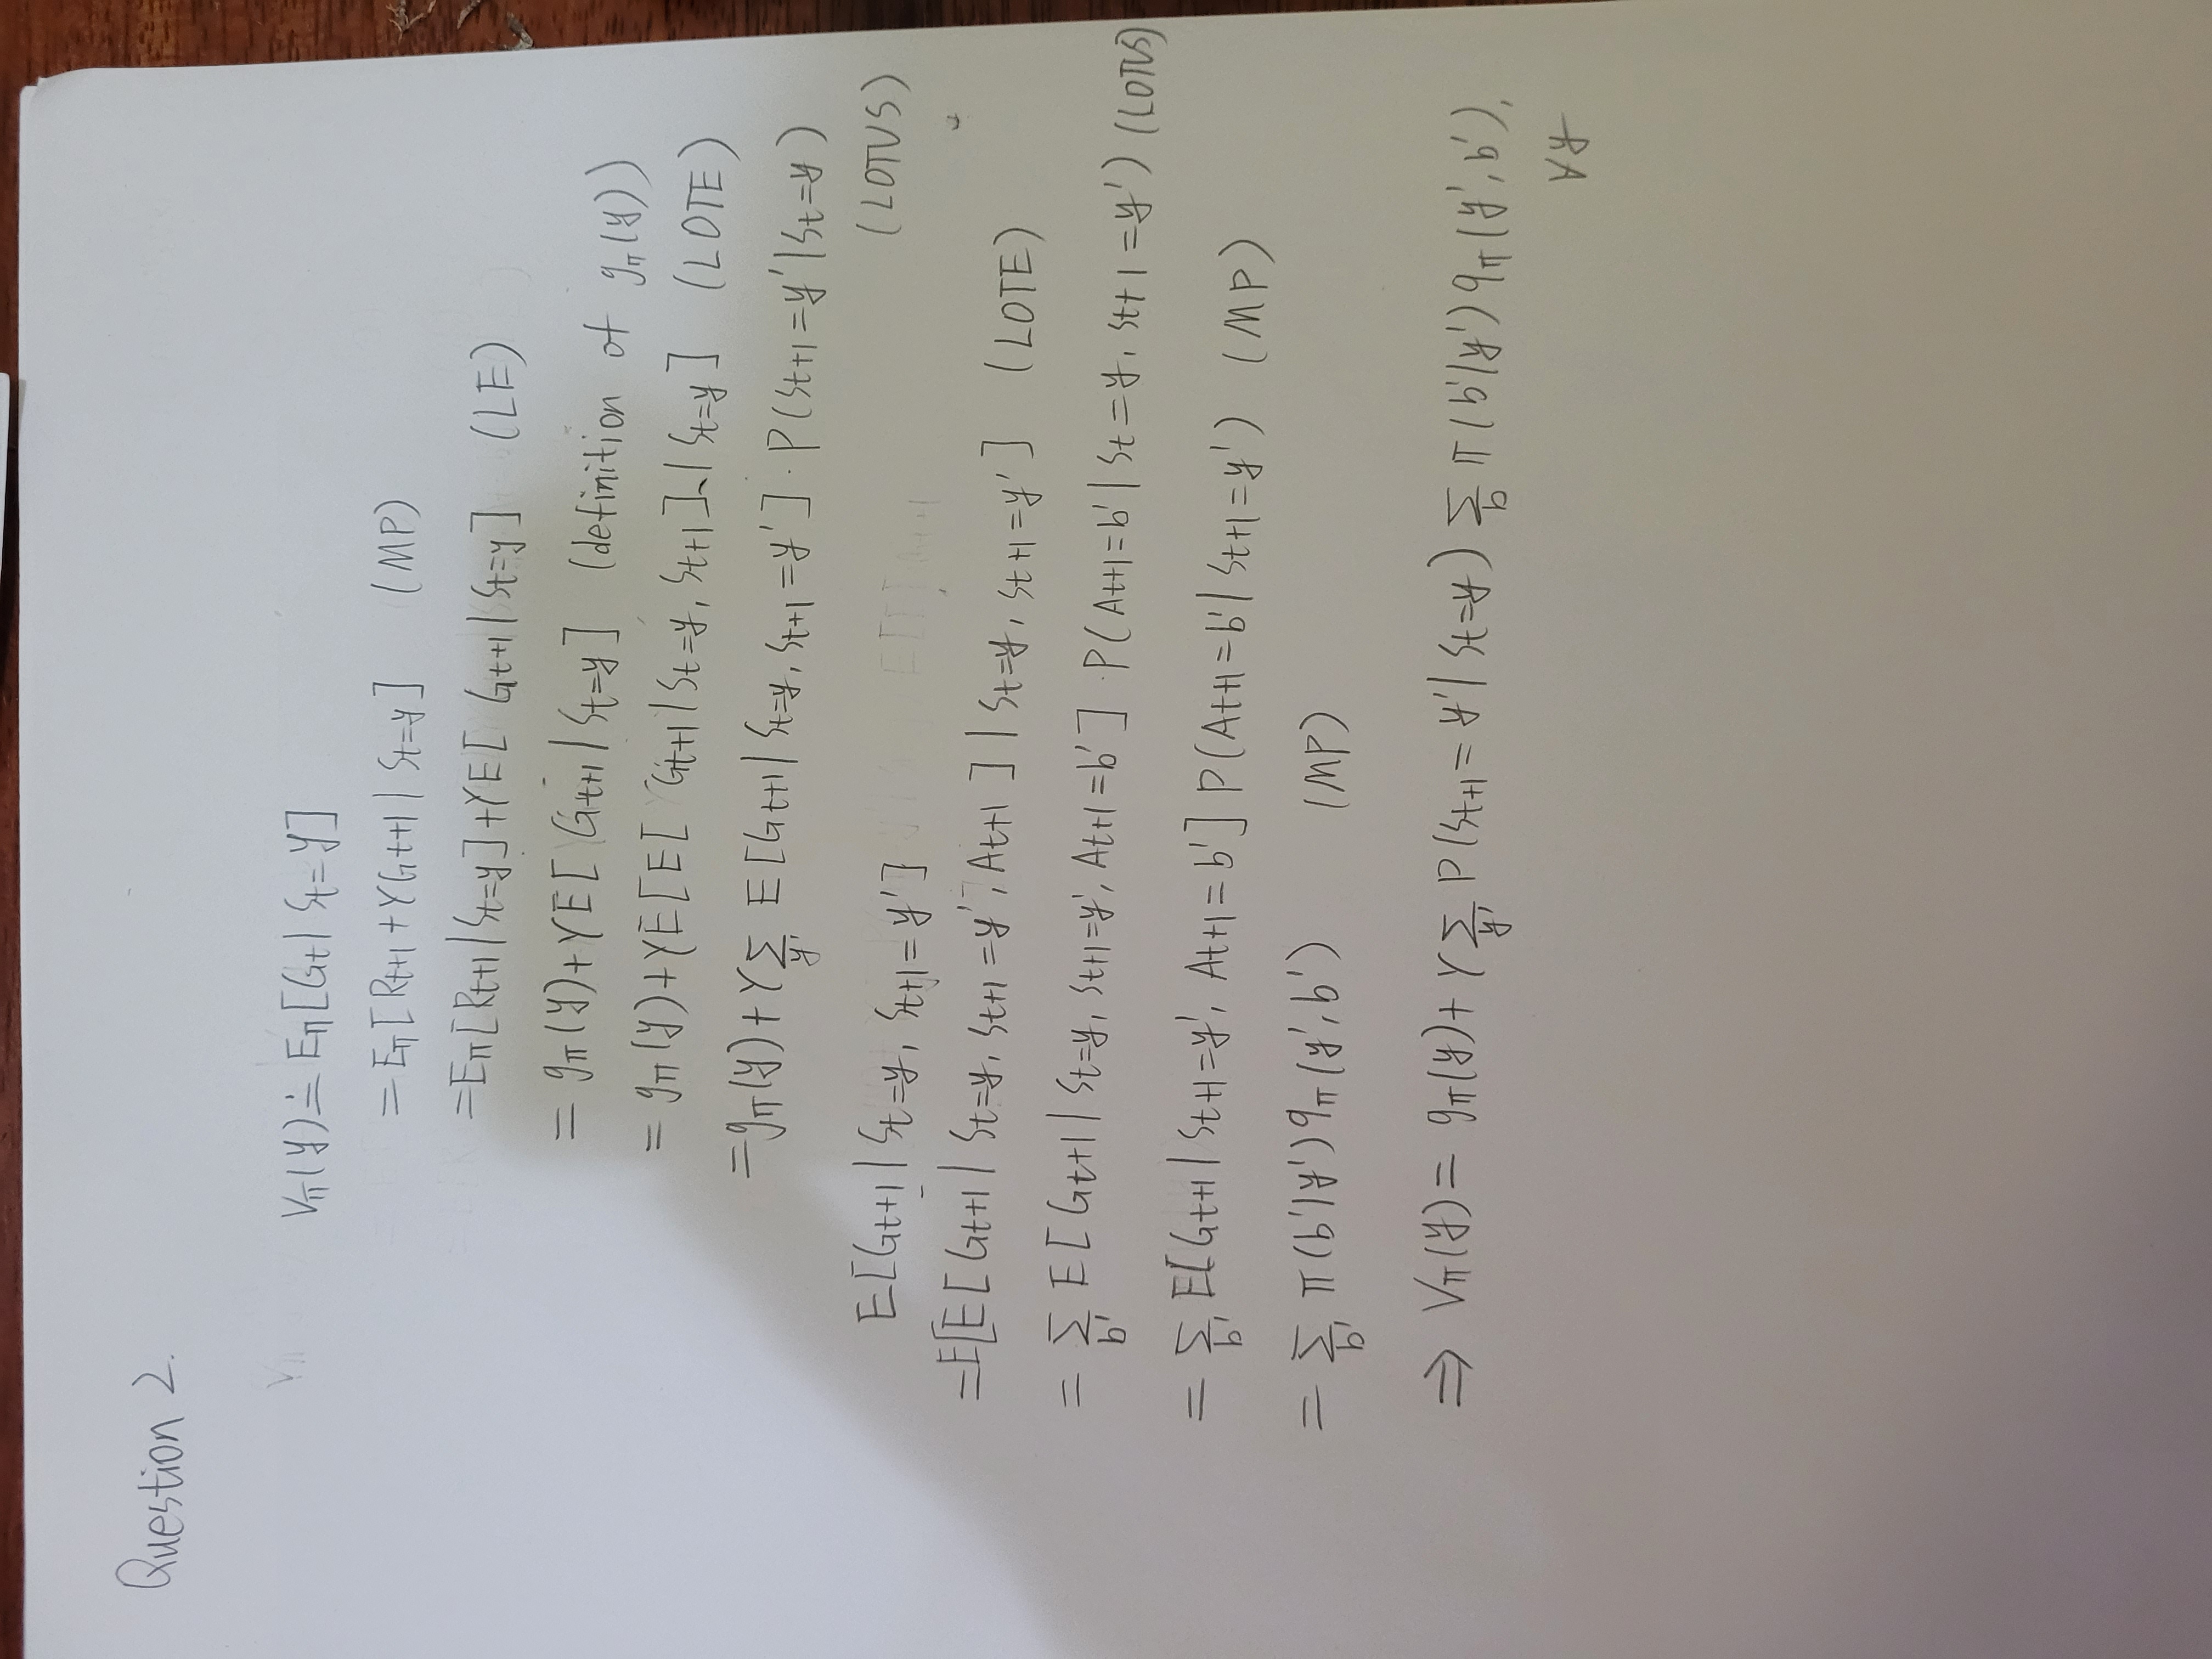 Question 2.
Vπ(y) ≐ Eπ[Gt | St=y]
= Eπ[Rt+1 + γGt+1 | St=y] (MP)
= Eπ[Rt+1 | St=y] + γE[ Gt+1 | St=y] (LE)
= gπ(y) + γE[ Gt+1 | St=y] (definition of gπ(y))
= gπ(y) + γE[E[ Gt+1 | St=y, St+1] | St=y] (LOTE)
= gπ(y) + γ∑y' E[Gt+1 | St=y, St+1=y'] · P(St+1=y' | St=y)
(LOTUS)
E[Gt+1 | St=y, St+1=y']
= E[E[Gt+1 | St=y, St+1=y', At+1] | St=y, St+1=y'] (LOTE)
= ∑b' E[Gt+1 | St=y, St+1=y', At+1=b'] · P(At+1=b' | St=y, St+1=y') (LOTUS)
= ∑b' E[Gt+1 | St+1=y', At+1=b'] P(At+1=b' | St+1=y') (MP)
= ∑b' π(b'|y') qπ(y', b') (MP)
⇒ Vπ(y) = gπ(y) + γ∑y' P(St+1=y' | St=y) ∑b π(b'|y') qπ(y', b'),
∀y